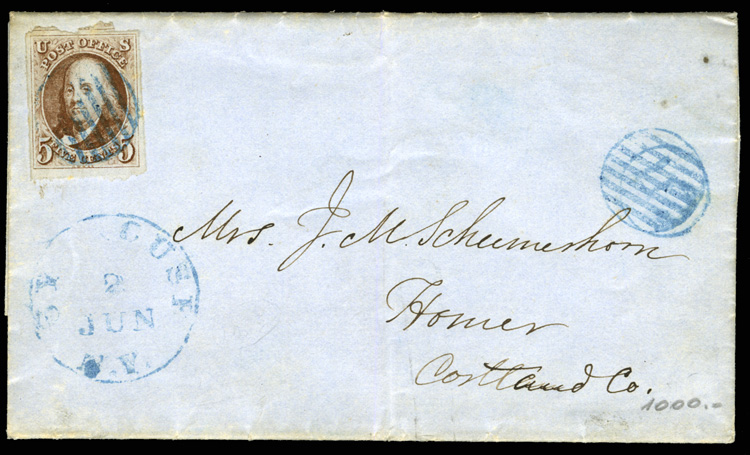 U S
POST OFFICE
5 FIVE CENTS 5
SYRACUSE
2
JUN
N.Y.
Mrs. J. M. Schermerhorn
Homer
Cortland Co.
1000.-